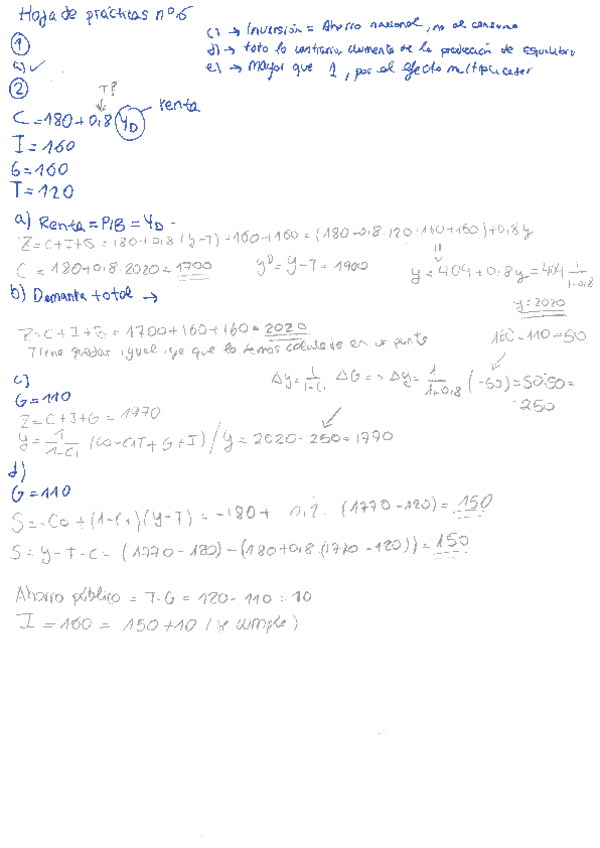 Hoja de prácticas nº6
c) → Inversión = Ahorro nacional, no al consumo
d) → toto lo contrario, aumento de la producción de equilibrio
e) → Mayor que 1, por el efecto multiplicador
①
a) ✓
②
T?
C = 180 + 0,8 YD renta
I = 160
G = 160
T = 120
a) Renta = PIB = YD -
Z = C+I+G = 180 + 0,8 (y-T) + 160 + 160 = (180 - 0,8·120 + 160 + 160) + 0,8y
C = 180 + 0,8·2020 = 1700
yD = y - T = 1900
y = 404 + 0,8y = 404 1/1-0,8
y = 2020
b) Demanta total →
Z = C+I+G = 1700 + 160 + 160 = 2020
Tiene quedar igual, ya que lo temos calculado en un punto
160 - 110 = 50
Δy = 1/1-C1 ΔG => Δy = 1/1-0,8 (-50) = 50·50 =
-250
c)
G = 110
Z = C+I+G = 1970
y = 1/1-C1 (C0 - C1T + G + I) / y = 2020 - 250 = 1770
d)
G = 110
S = -C0 + (1-C1)(y-T) = -180 + 0,2 · (1770 - 120) = 150
S = y - T - C = (1770 - 120) - (180 + 0,8 (1770 - 120)) = 150
Ahorro público = T-G = 120 - 110 = 10
I = 160 = 150 + 10 (se cumple)